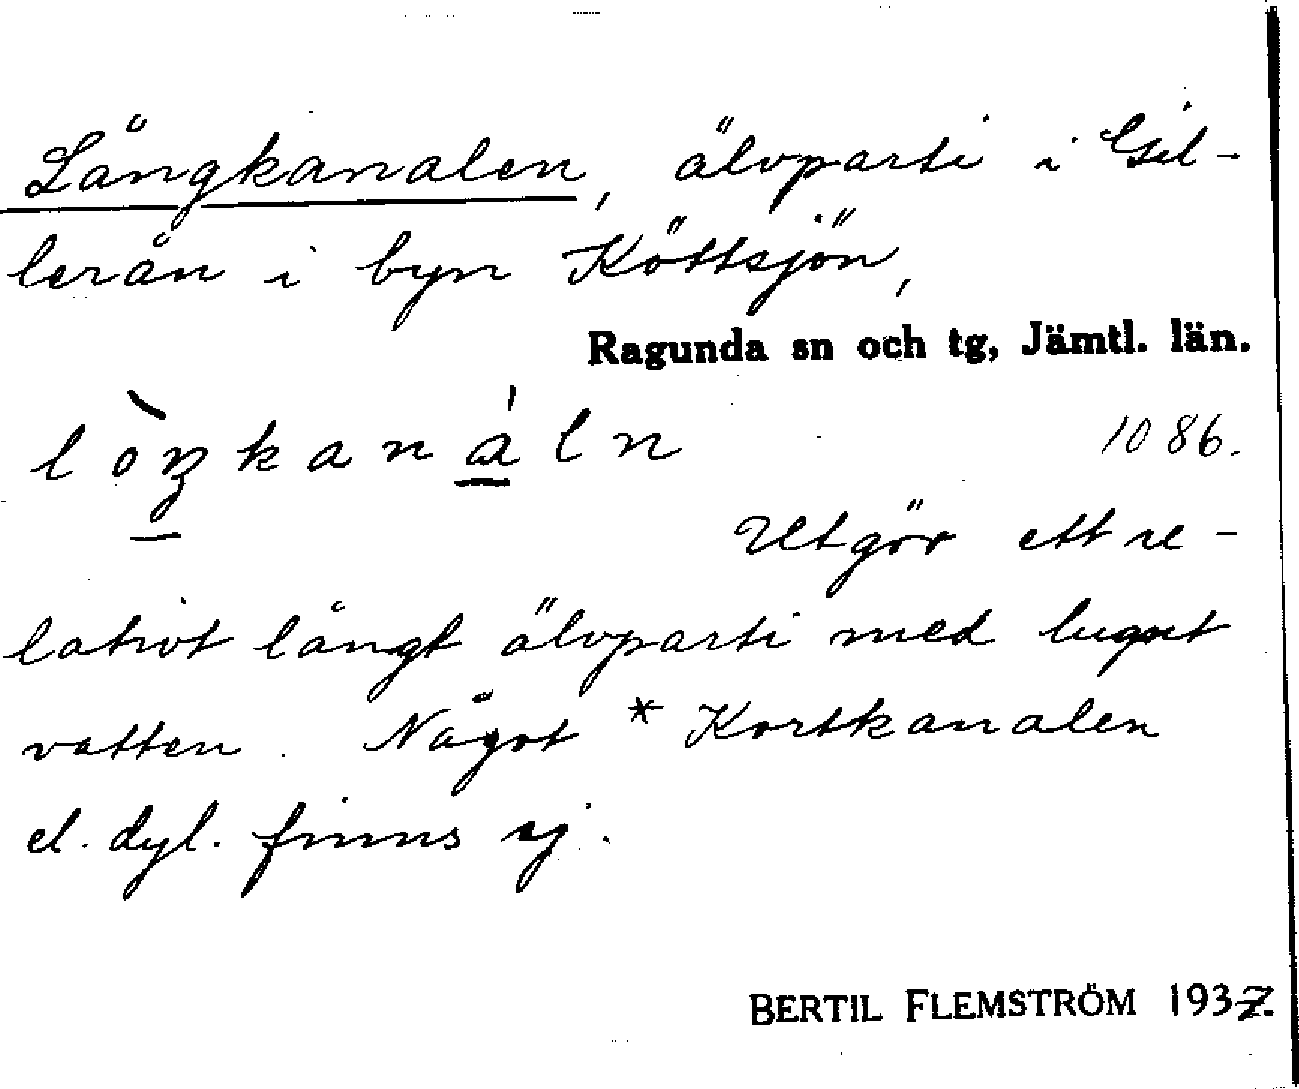 Långkanalen, älvparti i Gil-
lerån i byn Köttsjön,
Ragunda sn och tg, Jämtl. län.
lòŋkanáln 1086.
Utgör ett re-
lativt långt älvparti med lugnt
vatten. Något * Kortkanalen
el. dyl. finns ej.
BERTIL FLEMSTRÖM 1937.